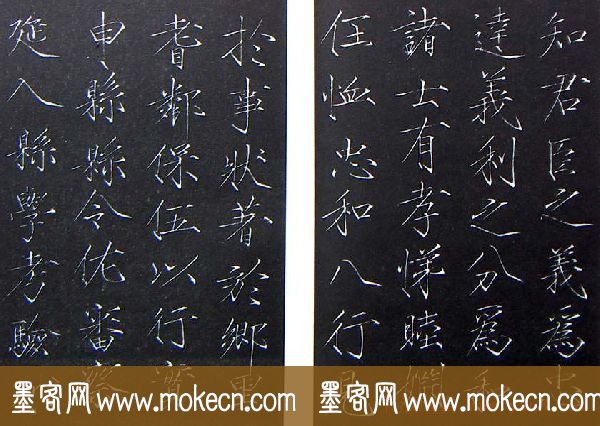 知君臣之義爲忠
達義利之分爲和
諸士有孝悌睦婣
任恤忠和八行見
於事狀著於鄉里
耆鄰保伍以行
申縣縣令佐審察
延入縣學考驗
墨客网 www.mokecn.com
墨客网 www.mokecn.com